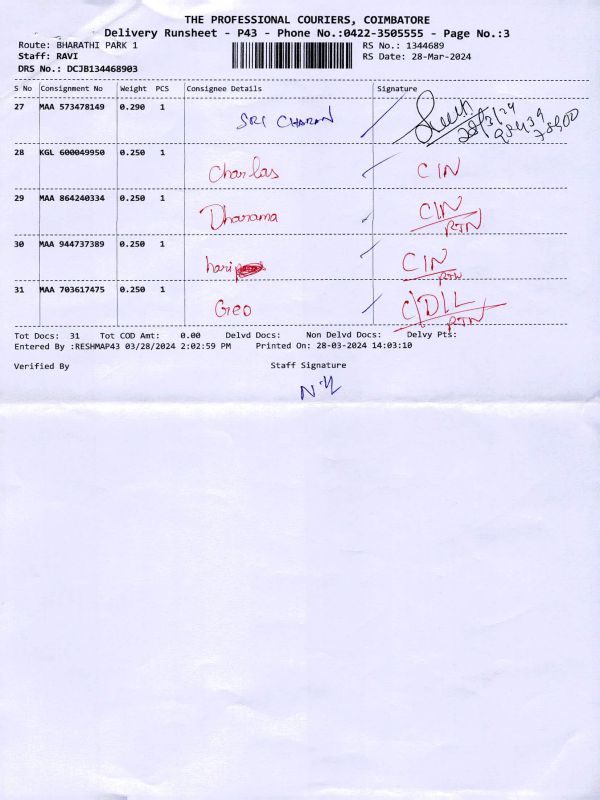 THE PROFESSIONAL COURIERS, COIMBATORE
Delivery Runsheet - P43 - Phone No.:0422-3505555 - Page No.:3
Route: BHARATHI PARK 1 RS No.: 1344689
Staff: RAVI RS Date: 28-Mar-2024
DRS No.: DCJB134468903
S No Consignment No Weight PCS Consignee Details Signature
27 MAA 573478149 0.290 1 SRI CHARAN 28/3/24
28 KGL 600049950 0.250 1 Charlas CIN
29 MAA 864240334 0.250 1 Dharama CIN
RTN
30 MAA 944737389 0.250 1 hari CIN
RTN
31 MAA 703617475 0.250 1 Geo C/DLL
RTN
Tot Docs: 31 Tot COD Amt: 0.00 Delvd Docs: Non Delvd Docs: Delvy Pts:
Entered By :RESHMAP43 03/28/2024 2:02:59 PM Printed On: 28-03-2024 14:03:10
Verified By Staff Signature